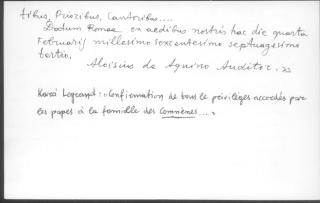 tibus, Prioribus, Cantoribus....
Datum Romae ex aedibus nostris hac die quarta
Februarij millesimo sexcentesimo septuagesimo
tertio.
Aloisius de Aquino Auditor. »
Legrand: «Confirmation de tous le privilèges accordés par
les papes à la famille des Comnènes....»